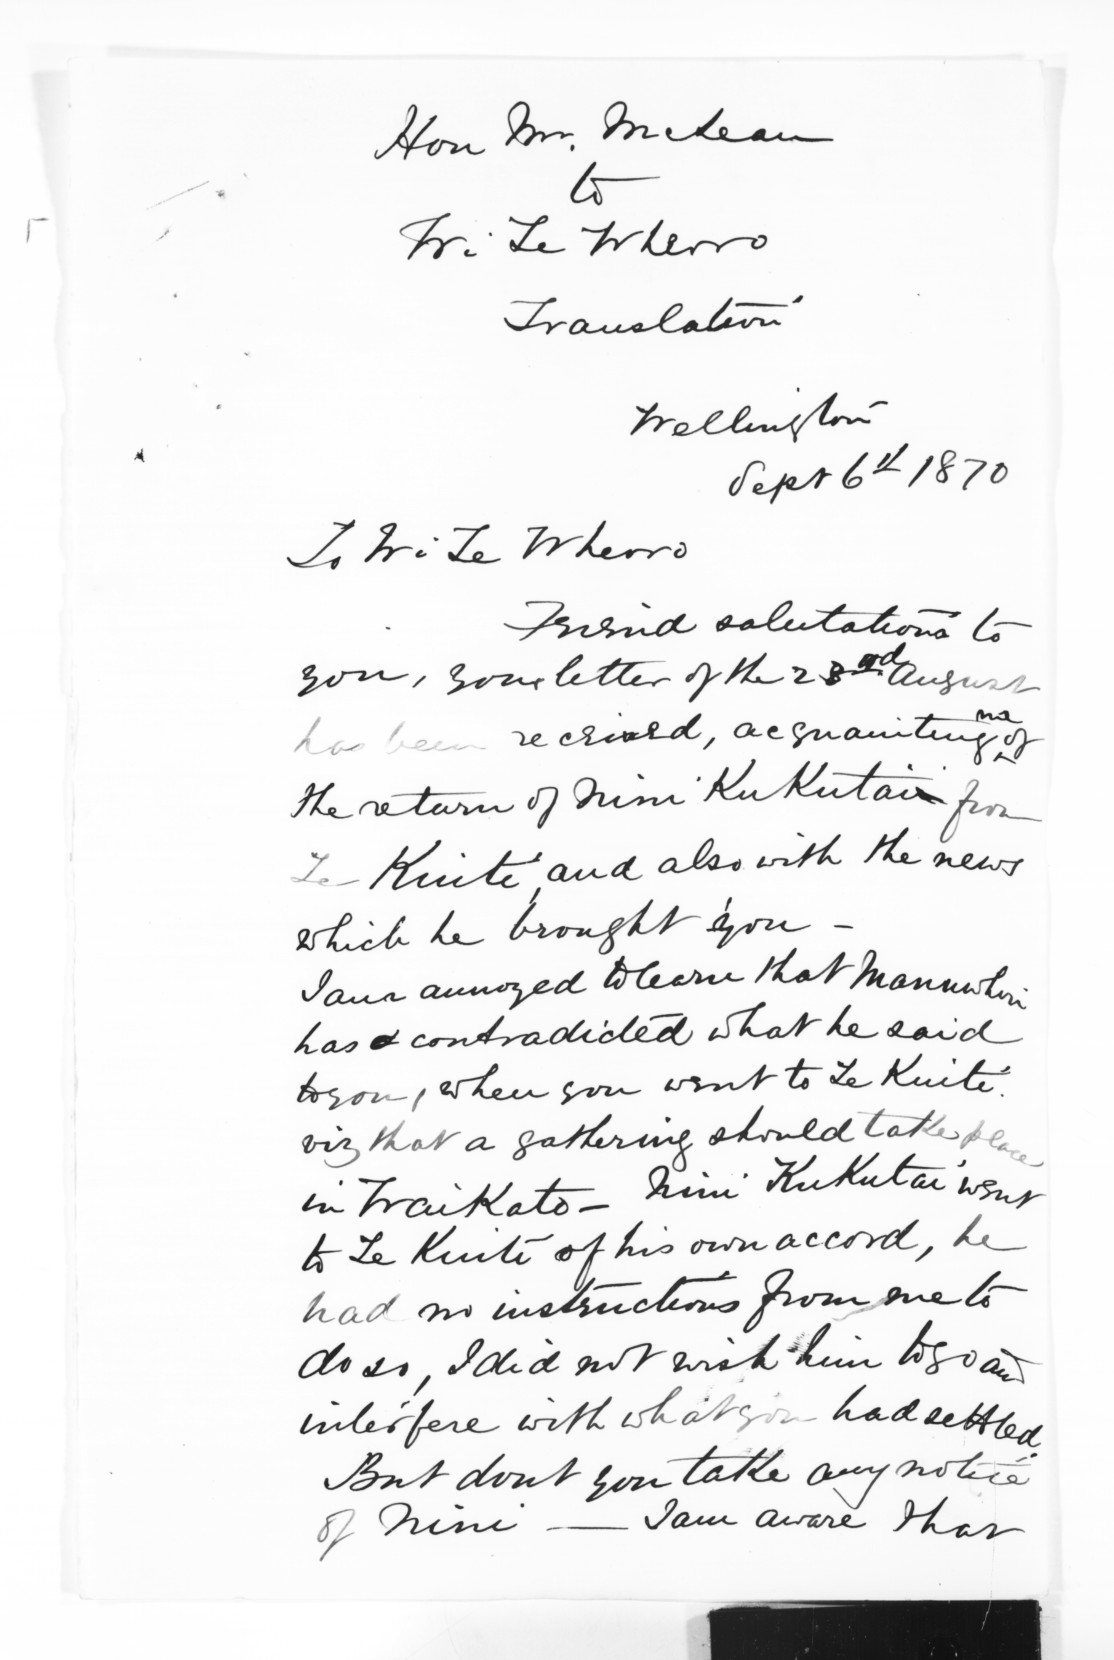 Hon Mr. McLean
to
Wi Te Wheoro
Translation
Wellington
Sept 6th 1870
To Wi Te Wheoro
Friend salutations to
you, your letter of the 23rd August
has been received, acquainting me of
the return of Nini Kukutai from
Te Kuiti, and also with the news
which he brought you –
I am annoyed to learn that Manuwhiri
has contradicted what he said
to you, when you went to Te Kuiti.
viz that a gathering should take place
in Waikato – Nini Kukutai went
to Te Kuiti of his own accord, he
had no instructions from me to
do so, I did not wish him to go and
interfere with what you had settled.
But dont you take any notice
of Nini — I am aware that